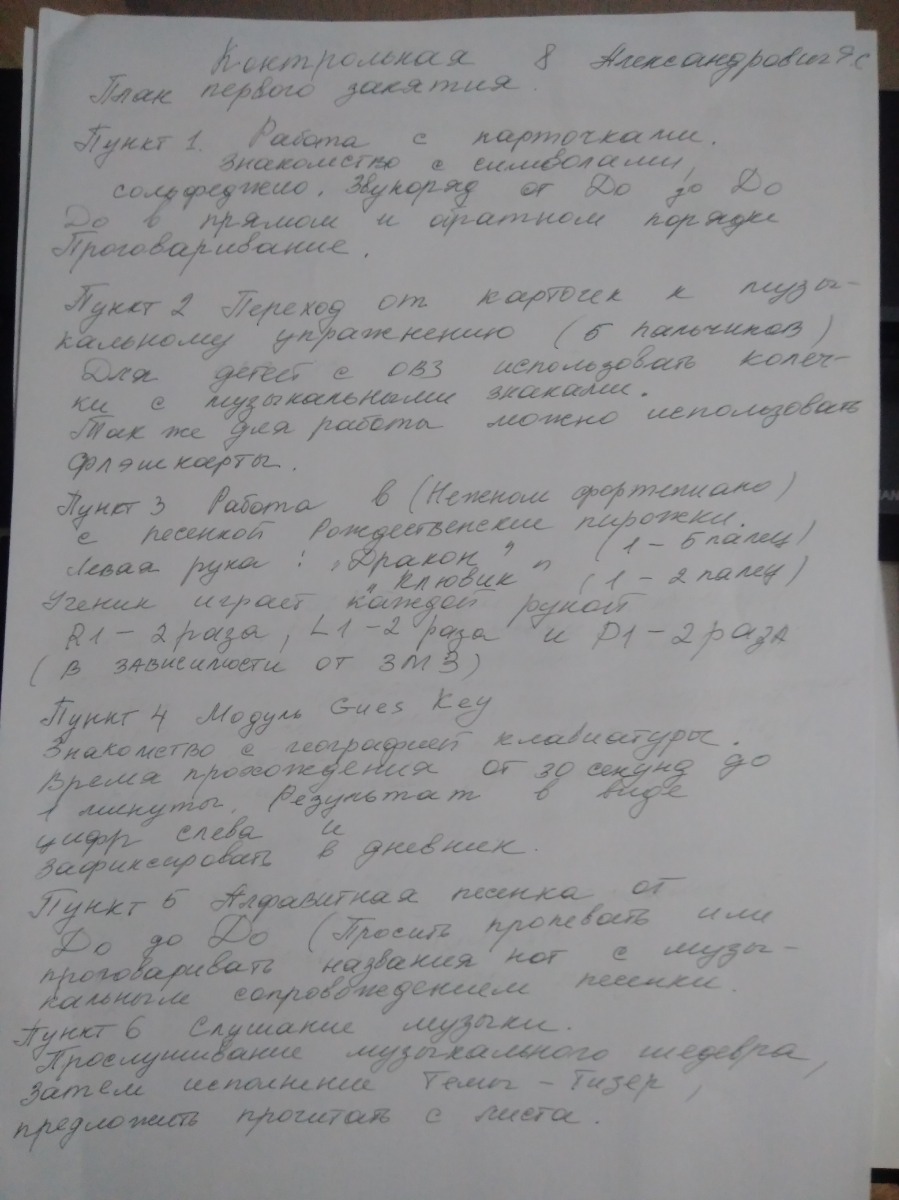 Контрольная 8 Александрович Я.С
План первого занятия.
Пункт 1. Работа с карточками.
Знакомство с символами,
сольфеджио. Звукоряд от До до До
До в прямом и обратном порядке
Проговаривание.
Пункт 2 Переход от карточек к музы-
кальному упражнению (5 пальчиков)
Для детей с ОВЗ использовать колеч-
ки с музыкальными знаками.
Так же для работы можно использовать
флэшкарты.
Пункт 3 Работа в (Нежном фортепиано)
с песенкой Рождественские пирожки.
Левая рука: „Дракон" (1-5 палец)
„Клювик" (1-2 палец)
Ученик играет каждой рукой
R1-2 раза, L1-2 раза и P1-2 раза
(В зависимости от ЗМЗ)
Пункт 4 Модуль Gues Key
Знакомство с географией клавиатуры.
Время прохождения от 30 секунд до
1 минуты. Результат в виде
цифр слева и
зафиксировать в дневник.
Пункт 5 Алфавитная песенка от
До до До (Просить пропевать или
проговаривать названия нот с музы-
кальным сопровождением песенки.
Пункт 6 Слушание музыки.
Прослушивание музыкального шедевра,
затем исполнение Темы-Тизер,
предложить прочитать с листа.